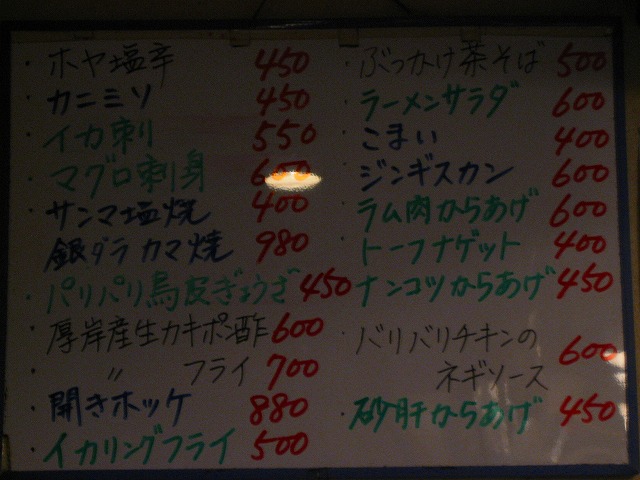 ・ホヤ塩辛 450
・カニミソ 450
・イカ刺し 550
・マグロ刺身 600
・サンマ塩焼 400
・銀ダラカマ焼 980
・パリパリ鳥皮ぎょうざ 450
・厚岸産生カキポン酢 600
・〃 フライ 700
・開きホッケ 880
・イカリングフライ 500
・ぶっかけ茶そば 500
・ラーメンサラダ 600
・こまい 400
・ジンギスカン 600
・ラム肉からあげ 600
・トーフナゲット 400
・ナンコツからあげ 450
・バリバリチキンの
ネギソース 600
・砂肝からあげ 450